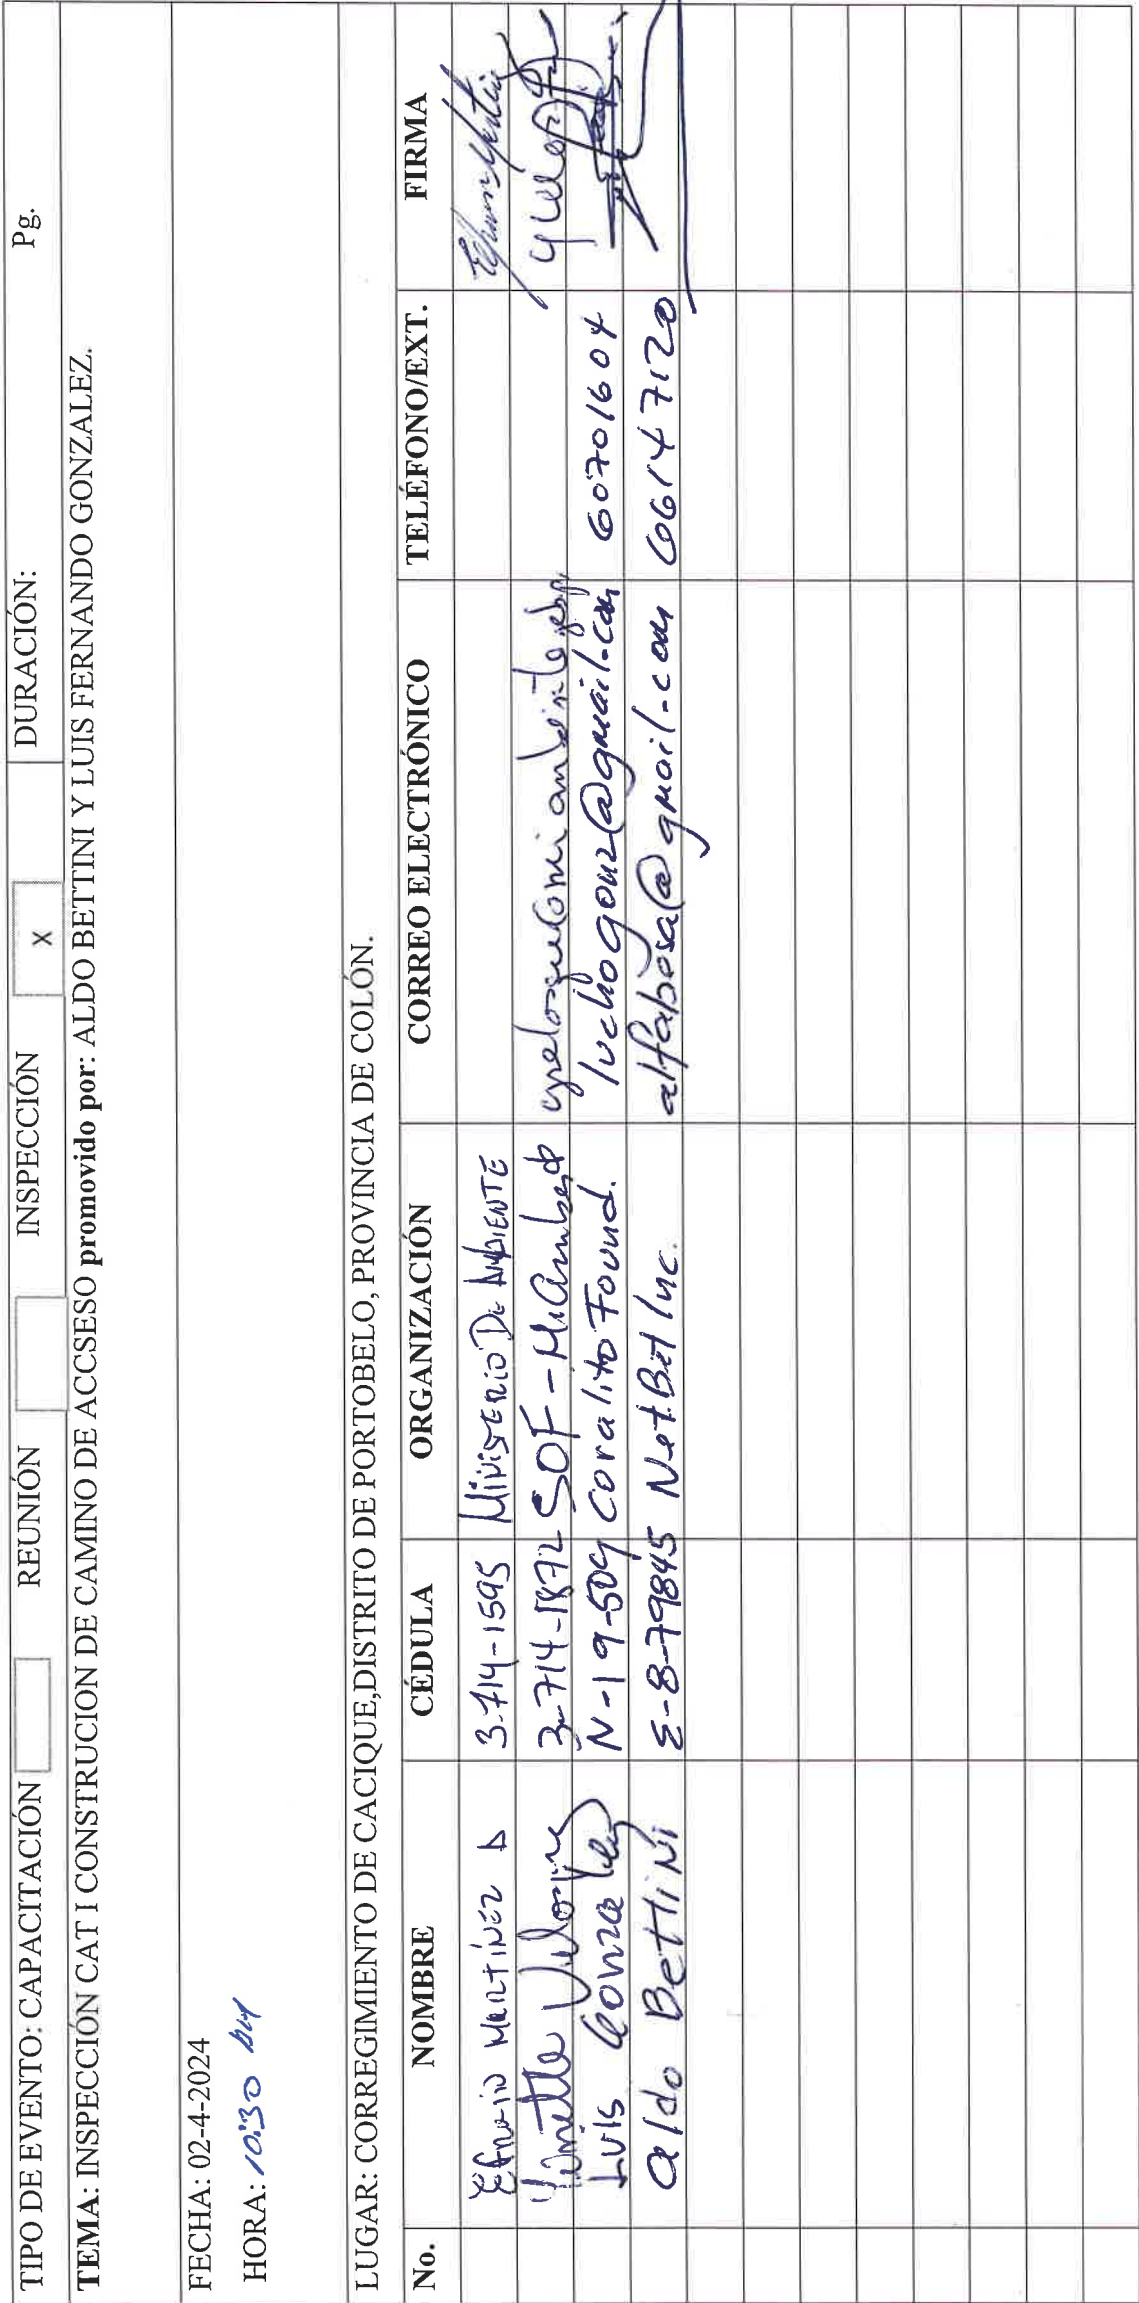 TIPO DE EVENTO: CAPACITACIÓN REUNIÓN INSPECCIÓN X DURACIÓN: Pg.
TEMA: INSPECCIÓN CAT I CONSTRUCION DE CAMINO DE ACCSESO promovido por: ALDO BETTINI Y LUIS FERNANDO GONZALEZ.
FECHA: 02-4-2024
HORA: 10:30 AM
LUGAR: CORREGIMIENTO DE CACIQUE,DISTRITO DE PORTOBELO, PROVINCIA DE COLÓN.
No. NOMBRE CÉDULA ORGANIZACIÓN CORREO ELECTRÓNICO TELÉFONO/EXT. FIRMA
MARTÍNEZ 3-714-1595 MINISTERIO DE AMBIENTE
3-714-1872 SOF-MiAmbiente
Luis Gonzalez N-19-509 Coralito Found. luchogonz@gmail.com 60701604
Aldo Bettini E-8-79845 NetBet Inc. alfabosa@gmail.com 66147120